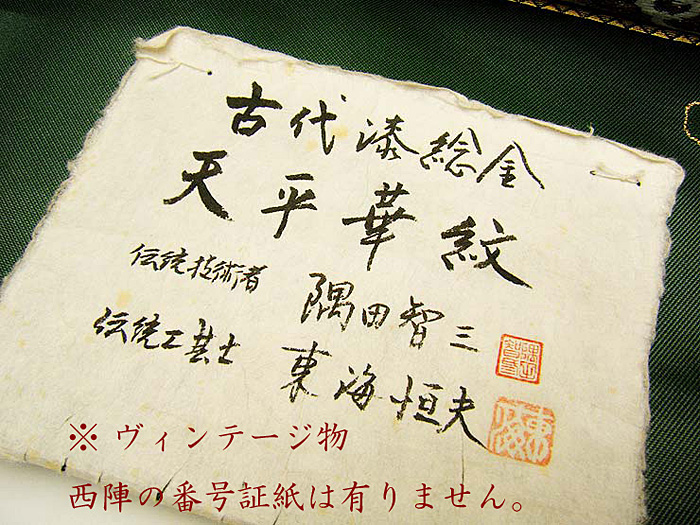 古代漆総金
天平華紋
伝統技術者 隅田智三
伝統工芸士 東海恒夫
※ ヴィンテージ物
西陣の番号証紙は有りません。